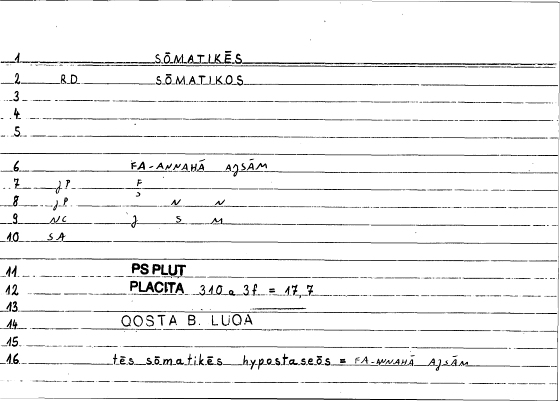 1 SŌMATIKĒS
2 R.D. SŌMATIKOS
3
4
5
6 FA-ANNAHĀ AJSĀM
7 JP F
8 JP N N
9 NC J S M
10 SA
11 PS PLUT
12 PLACITA 310 a 3f = 17,7
13
14 QOSTA B. LUQA
15
16 tēs sōmatikēs hypostaseōs = FA-ANNAHĀ AJSĀM